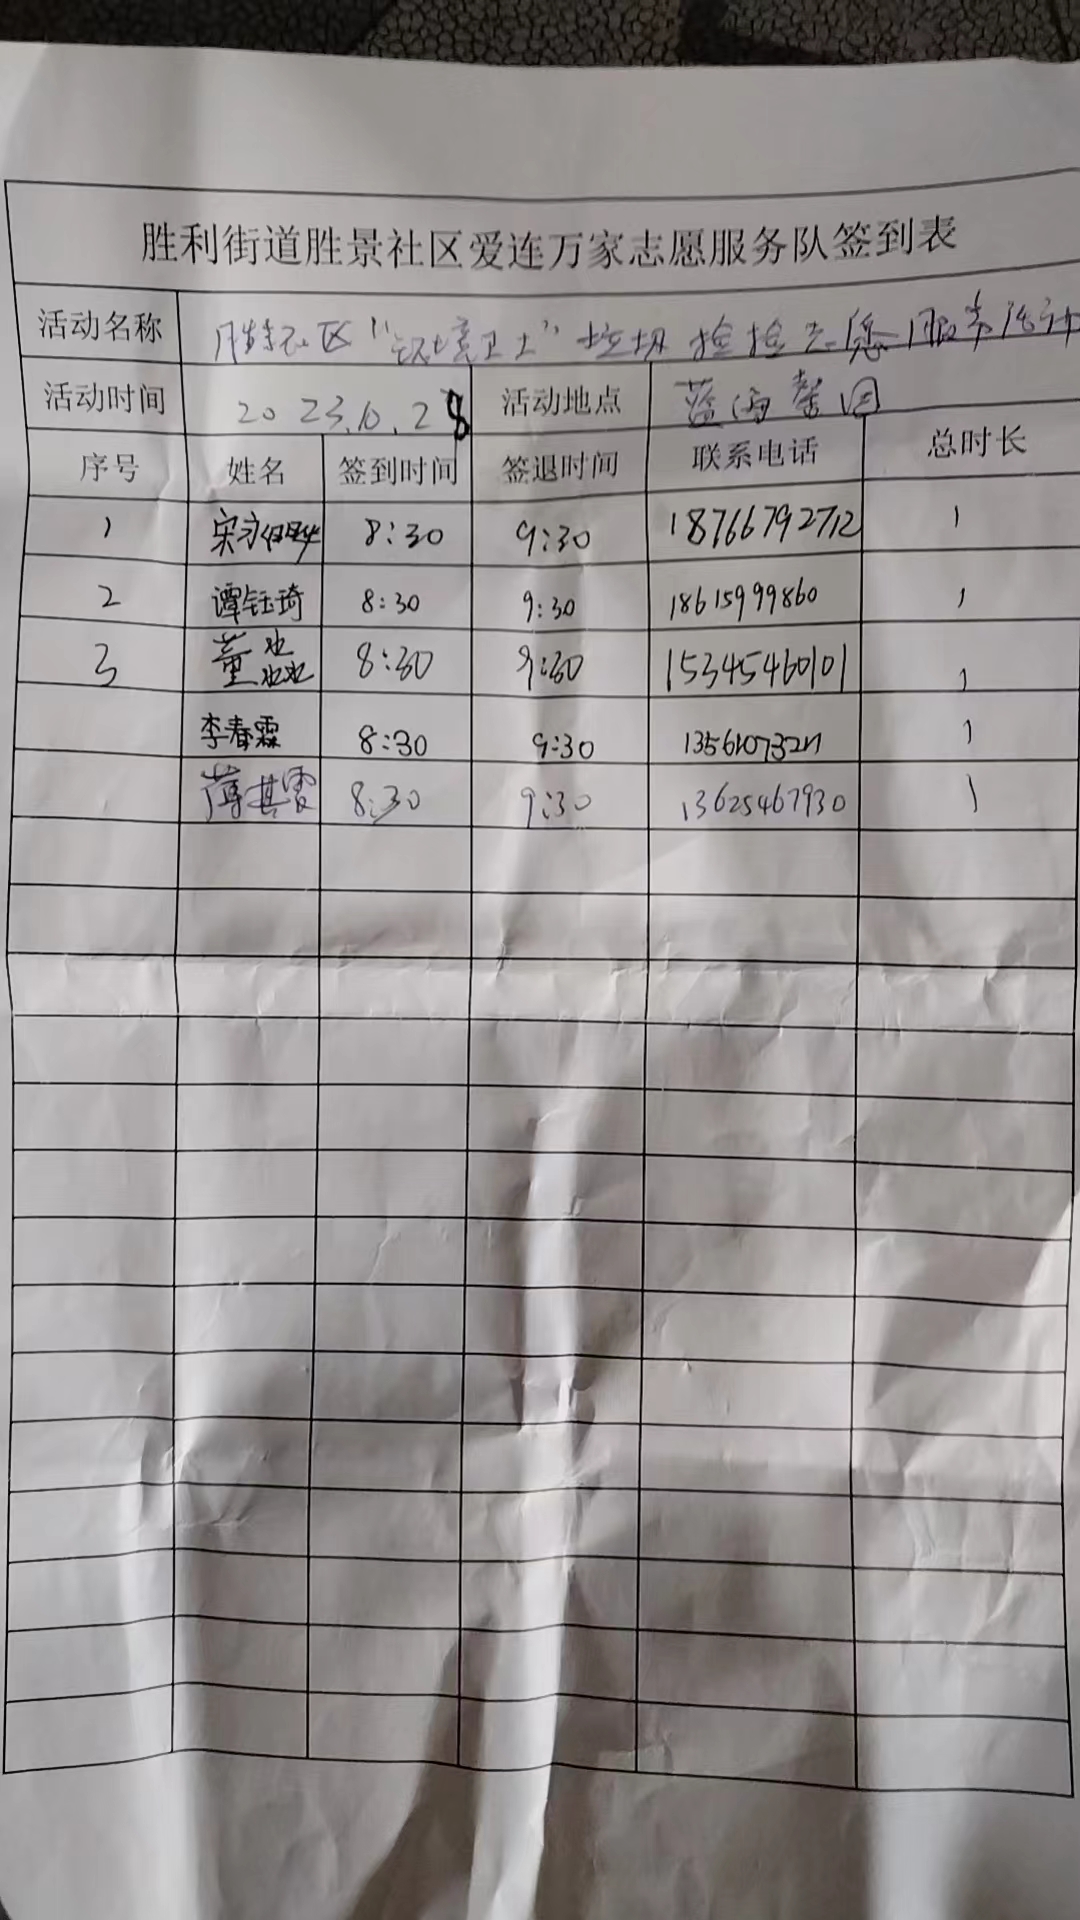 胜利街道胜景社区爱连万家志愿服务队签到表
活动名称 胜景社区“环境卫士”垃圾捡捡志愿服务活动
活动时间 2023.10.28 活动地点 蓝海馨园
序号 姓名 签到时间 签退时间 联系电话 总时长
1 宋 8:30 9:30 18766792712 1
2 谭钰琦 8:30 9:30 18615999860 1
3 董淼 8:30 9:30 15345460101 1
李春霖 8:30 9:30 1
薄其雯 8:30 9:30 13625467930 1